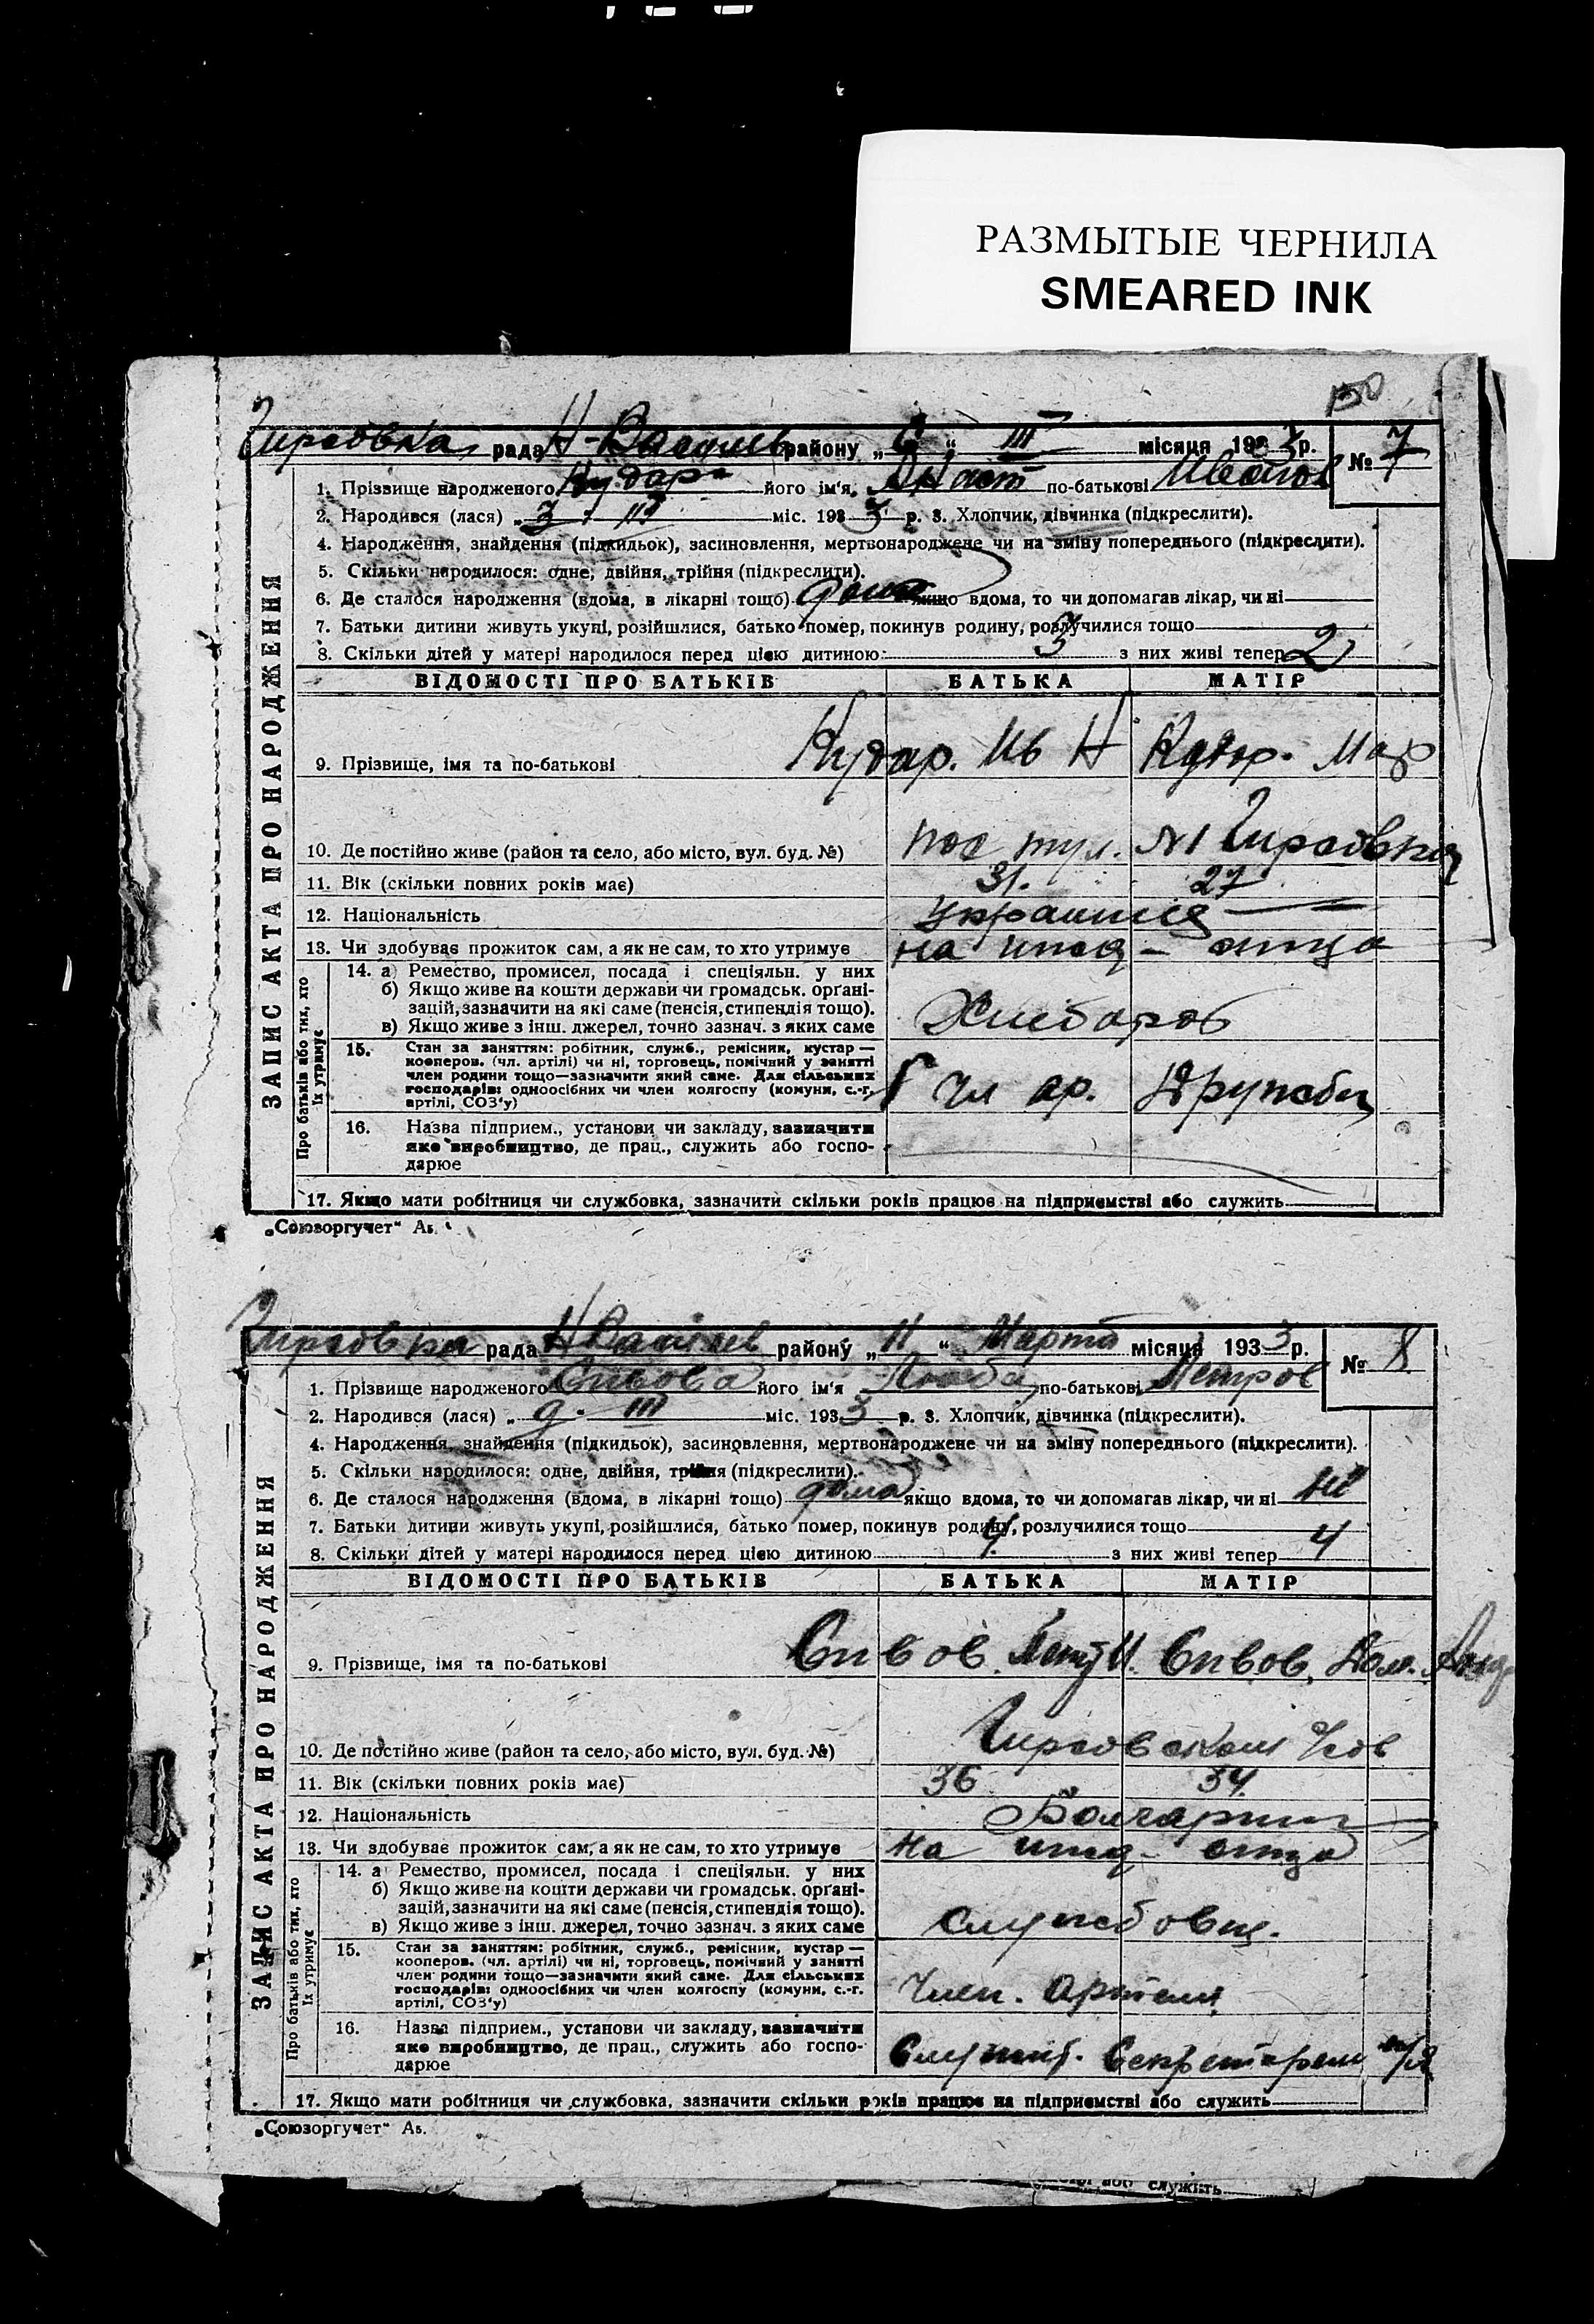 РАЗМЫТЫЕ ЧЕРНИЛА
SMEARED INK
150
Гирсовка рада Н-Васильев району „6“ III місяця 1933 р. № 7
1. Прізвище народженого Кудар його ім'я Анаст по-батькові Иванов
2. Народився (лася) „3 III міс. 1933 р. 3. Хлопчик, дівчинка (підкреслити).
4. Народження, знайдення (підкидьок), засиновлення, мертвонароджене чи на зміну попереднього (підкреслити).
5. Скільки народилося: одне, двійня, трійня (підкреслити).
6. Де сталося народження (вдома, в лікарні тощо) дома якщо вдома, то чи допомагав лікар, чи ні
7. Батьки дитини живуть укупі, розійшлися, батько помер, покинув родину, розлучилися тощо
8. Скільки дітей у матері народилося перед цією дитиною: 3 з них живі тепер 2
ЗАПИС АКТА ПРО НАРОДЖЕННЯ
ВІДОМОСТІ ПРО БАТЬКІВ БАТЬКА МАТІР
9. Прізвище, імя та по-батькові Кудар. Ив Н Кудар. Мар
10. Де постійно живе (район та село, або місто, вул. буд. №) пос №1 Гирсовка
11. Вік (скільки повних років має) 31. 27
12. Національність
13. Чи здобуває прожиток сам, а як не сам, то хто утримує на ижд- отца
Про батьків або тих, хто їх утримує
14. а) Ремество, промисел, посада і спеціяльн. у них
б) Якщо живе на кошти держави чи громадськ. органі-
зацій, зазначити на які саме (пенсія, стипендія тощо).
в) Якщо живе з інш. джерел, точно зазнач. з яких саме Хлебороб
15. Стан за заняттям: робітник, служб., ремісник, кустар —
кооперов. (чл. артілі) чи ні, торговець, помічний у занятті
член родини тощо—зазначити який саме. Для сільських
господарів: одноосібних чи член колгоспу (комуни, с.-г.
артілі, СОЗ'у) чл ар. Дружбы
16. Назва підприєм., установи чи закладу, зазначити
яке виробництво, де прац., служить або госпо-
дарює
17. Якщо мати робітниця чи службовка, зазначити скільки років працює на підприємстві або служить
„Союзоргучет“ Ав.
Гирсовка рада Н Васильев району „11“ Марта місяця 1933 р. № 8
1. Прізвище народженого Сивова його ім'я Люба по-батькові Петров
2. Народився (лася) „9. III міс. 1933 р. 3. Хлопчик, дівчинка (підкреслити).
4. Народження, знайдення (підкидьок), засиновлення, мертвонароджене чи на зміну попереднього (підкреслити).
5. Скільки народилося: одне, двійня, трійня (підкреслити).
6. Де сталося народження (вдома, в лікарні тощо) дома якщо вдома, то чи допомагав лікар, чи ні ні
7. Батьки дитини живуть укупі, розійшлися, батько помер, покинув родину, розлучилися тощо
8. Скільки дітей у матері народилося перед цією дитиною 4. з них живі тепер 4
ЗАПИС АКТА ПРО НАРОДЖЕННЯ
ВІДОМОСТІ ПРО БАТЬКІВ БАТЬКА МАТІР
9. Прізвище, імя та по-батькові Сивов Сивов,
10. Де постійно живе (район та село, або місто, вул. буд. №)
11. Вік (скільки повних років має) 36 34.
12. Національність
13. Чи здобуває прожиток сам, а як не сам, то хто утримує на ижд- отца
Про батьків або тих, хто їх утримує
14. а Ремество, промисел, посада і спеціяльн. у них
б) Якщо живе на кошти держави чи громадськ. органі-
зацій, зазначити на які саме (пенсія, стипендія тощо).
в) Якщо живе з інш. джерел, точно зазнач. з яких саме службовец.
15. Стан за заняттям: робітник, служб., ремісник, кустар —
кооперов. (чл. артілі) чи ні, торговець, помічний у занятті
член родини тощо—зазначити який саме. Для сільських
господарів: одноосібних чи член колгоспу (комуни, с.-г.
артілі, СОЗ'у) Член. артели
16. Назва підприєм., установи чи закладу, зазначити
яке виробництво, де прац., служить або госпо-
дарює Служит. Секретарем
17. Якщо мати робітниця чи службовка, зазначити скільки років працює на підприємстві або служить
„Союзоргучет“ Ав.
або служить